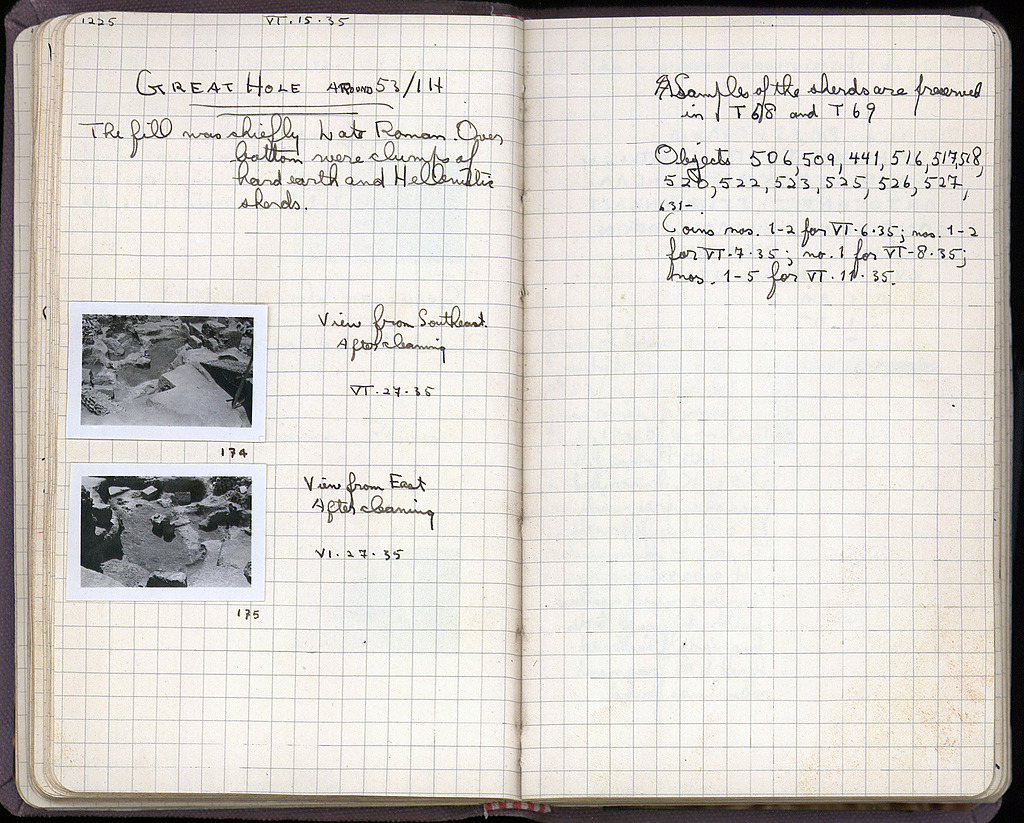 1225 VI·15·35
GREAT HOLE AROUND 53/ΙΗ
The fill was chiefly Late Roman. Over
bottom were clumps of
hard earth and Hellenistic
sherds.
View from Southeast.
After cleaning
VI·27·35
174
View from East
After cleaning
VI·27·35
175
Samples of the sherds are preserved
in T 68 and T 69
Objects 506, 509, 441, 516, 517, 518,
520, 522, 523, 525, 526, 527,
631-
Coins nos. 1-2 for VI·6·35; nos. 1-2
for VI·7·35; no. 1 for VI-8·35;
nos. 1-5 for VI·11·35.